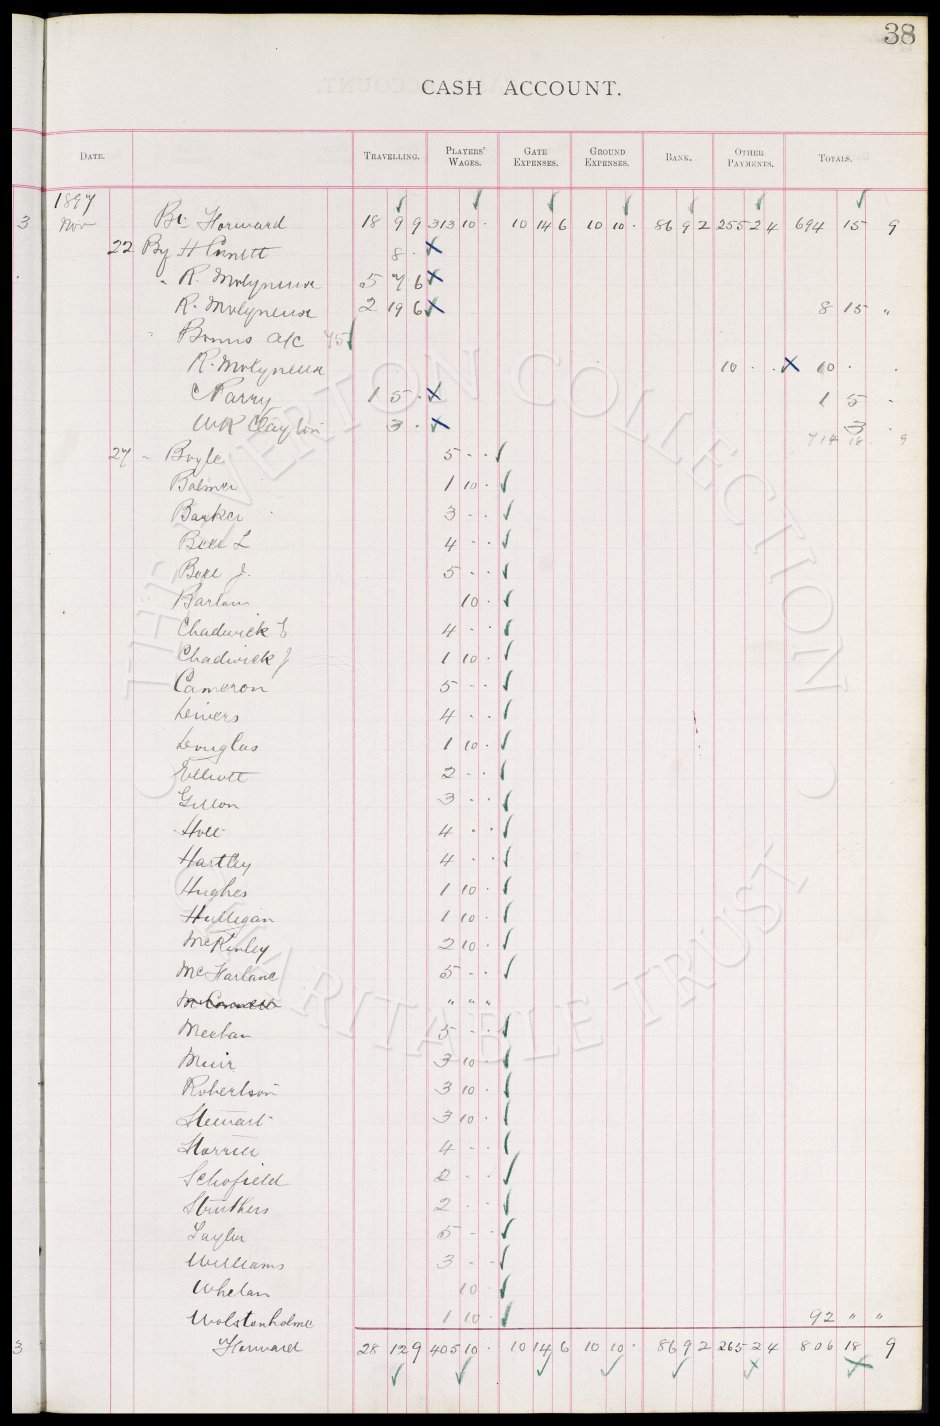 38
CASH ACCOUNT.
DATE. TRAVELLING. PLAYERS' WAGES. GATE EXPENSES. GROUND EXPENSES. BANK. OTHER PAYMENTS. TOTALS.
1897
3 Nov Bt Forward 18 9 9 313 10 · 10 14 6 10 10 · 86 9 2 255 2 4 694 15 9
22 By H 8 ·
" R. Molyneux 5 7 6
R. Molyneux 2 19 6 8 15 "
" Bonus a/c 75
R. Molyneux 10 · · 10 · ·
C Parry 1 5 · 1 5 ·
W R Clayton 3 · 3 ·
714 18 9
27 " Boyle 5 · ·
Balmer 1 10 ·
Barker 3 · ·
Bell L 4 · ·
Bell J. 5 · ·
Barlow 10 ·
Chadwick E 4 · ·
Chadwick J 1 10 ·
Cameron 5 · ·
Divers 4 · ·
Douglas 1 10 ·
Elliott 2 · ·
Gillon 3 · ·
Holt 4 · ·
Hartley 4 · ·
Hughes 1 10 ·
Hulligan 1 10 ·
McKinley 2 10 ·
McFarlane 5 · ·
" " "
Meehan 5 · ·
Muir 3 10 ·
Robertson 3 10 ·
Stewart 3 10 ·
Storrier 4 · ·
Schofield 2 · ·
Struthers 2 · ·
Taylor 5 · ·
Williams 3 · ·
Whelan 10 ·
Wolstenholme 1 10 · 92 " "
3 Forward 28 12 9 405 10 · 10 14 6 10 10 · 86 9 2 265 2 4 806 18 9
THE EVERTON COLLECTION
CHARITABLE TRUST